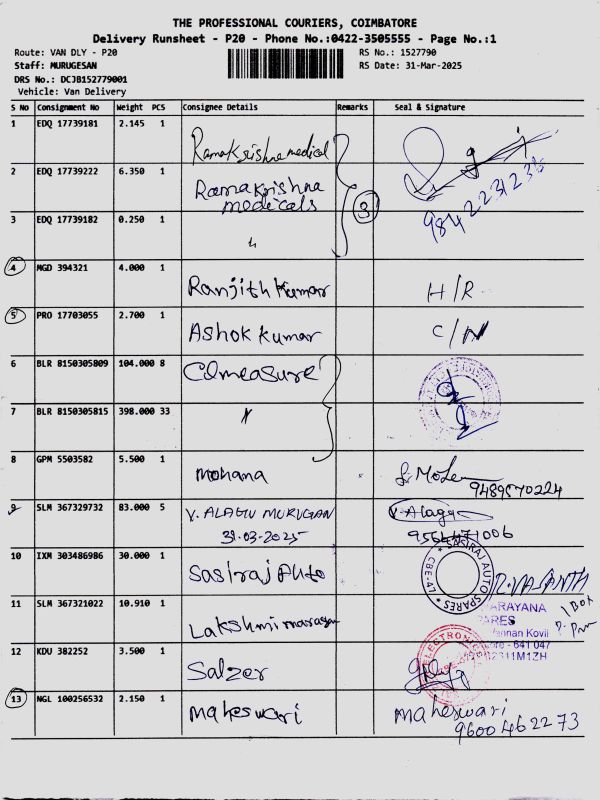 THE PROFESSIONAL COURIERS, COIMBATORE
Delivery Runsheet - P20 - Phone No.:0422-3505555 - Page No.:1
Route: VAN DLY - P20
Staff: MURUGESAN
DRS No.: DCJB152779001
Vehicle: Van Delivery
RS No.: 1527790
RS Date: 31-Mar-2025
S No Consignment No Weight PCS Consignee Details Remarks Seal & Signature
1 EDQ 17739181 2.145 1 Ramakrishna medical
2 EDQ 17739222 6.350 1 Ramakrishna medicals 3 9842231236
3 EDQ 17739182 0.250 1 "
4 MGD 394321 4.000 1 Ranjith Kumar H/R
5 PRO 17703055 2.700 1 Ashok kumar C/N
6 BLR 8150305809 104.000 8 Comeasure
7 BLR 8150305815 398.000 33 "
8 GPM 5503582 5.500 1 mohana 9489570224
9 SLM 367329732 83.000 5 V. ALAGU MURUGAN V. Alagu
31-03-2025
10 IXM 303486986 30.000 1 Sasiraj Auto SASIRAJ AUTO SPARES CBE-47 R. VASANTH
11 SLM 367321022 10.910 1 Lakshminarayan ARAYANA 1 Box
ARES
annan Kovil
641 047
311M1ZH
12 KDU 382252 3.500 1 Salzer ELECTRONI
13 NGL 100256532 2.150 1 Maheswari maheswari
9600462273